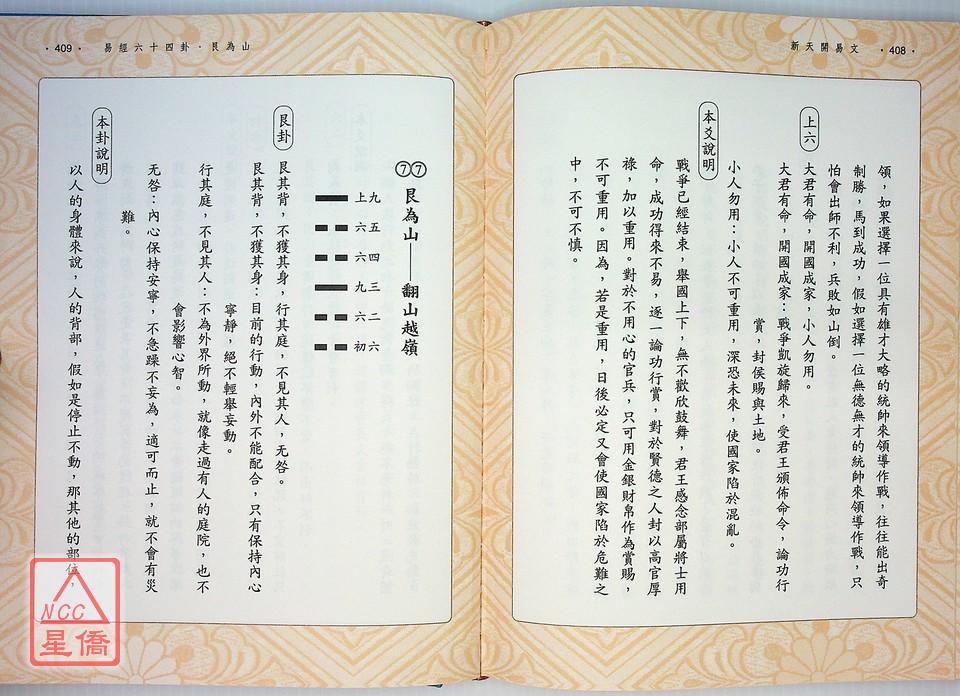 新天開易文 •408•
領，如果選擇一位具有雄才大略的統帥來領導作戰，往往能出奇
制勝，馬到成功，假如選擇一位無德無才的統帥來領導作戰，只
怕會出師不利，兵敗如山倒。
上六
大君有命，開國成家，小人勿用。
大君有命，開國成家：戰爭凱旋歸來，受君王頒佈命令，論功行
賞，封侯賜與土地。
小人勿用：小人不可重用，深恐未來，使國家陷於混亂。
本爻說明
戰爭已經結束，舉國上下，無不歡欣鼓舞，君王感念部屬將士用
命，成功得來不易，逐一論功行賞，對於賢德之人封以高官厚
祿，加以重用。對於不用心的官兵，只可用金銀財帛作為賞賜，
不可重用。因為，若是重用，日後必定又會使國家陷於危難之
中，不可不慎。
•409• 易經六十四卦·艮為山
⑦⑦艮為山——翻山越嶺
上九
六五
六四
九三
六二
初六
艮卦
艮其背，不獲其身，行其庭，不見其人，无咎。
艮其背，不獲其身：目前的行動，內外不能配合，只有保持內心
寧靜，絕不輕舉妄動。
行其庭，不見其人：不為外界所動，就像走過有人的庭院，也不
會影響心智。
无咎：內心保持安寧，不急躁不妄為，適可而止，就不會有災
難。
本卦說明
以人的身體來說，人的背部，假如是停止不動，那其他的部位，
NCC
星僑